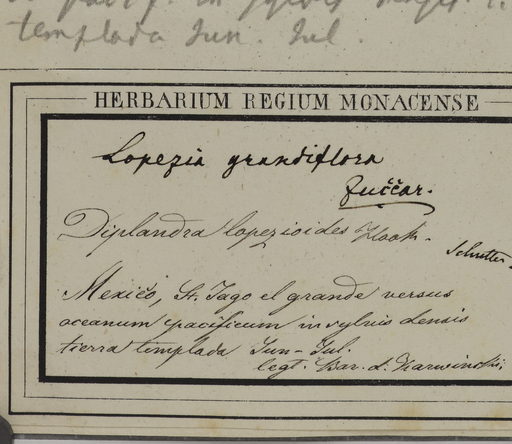 templada Jun. Jul.
HERBARIUM REGIUM MONACENSE
Lopezia grandiflora
Zuččar.
Diplandra lopezioides Hook.
Mexičo, St. Jago el grande versus
oceanum pacificum in sylvis densis
tierra templada Jun-Jul.
legt. Bar. d. Karwinski,